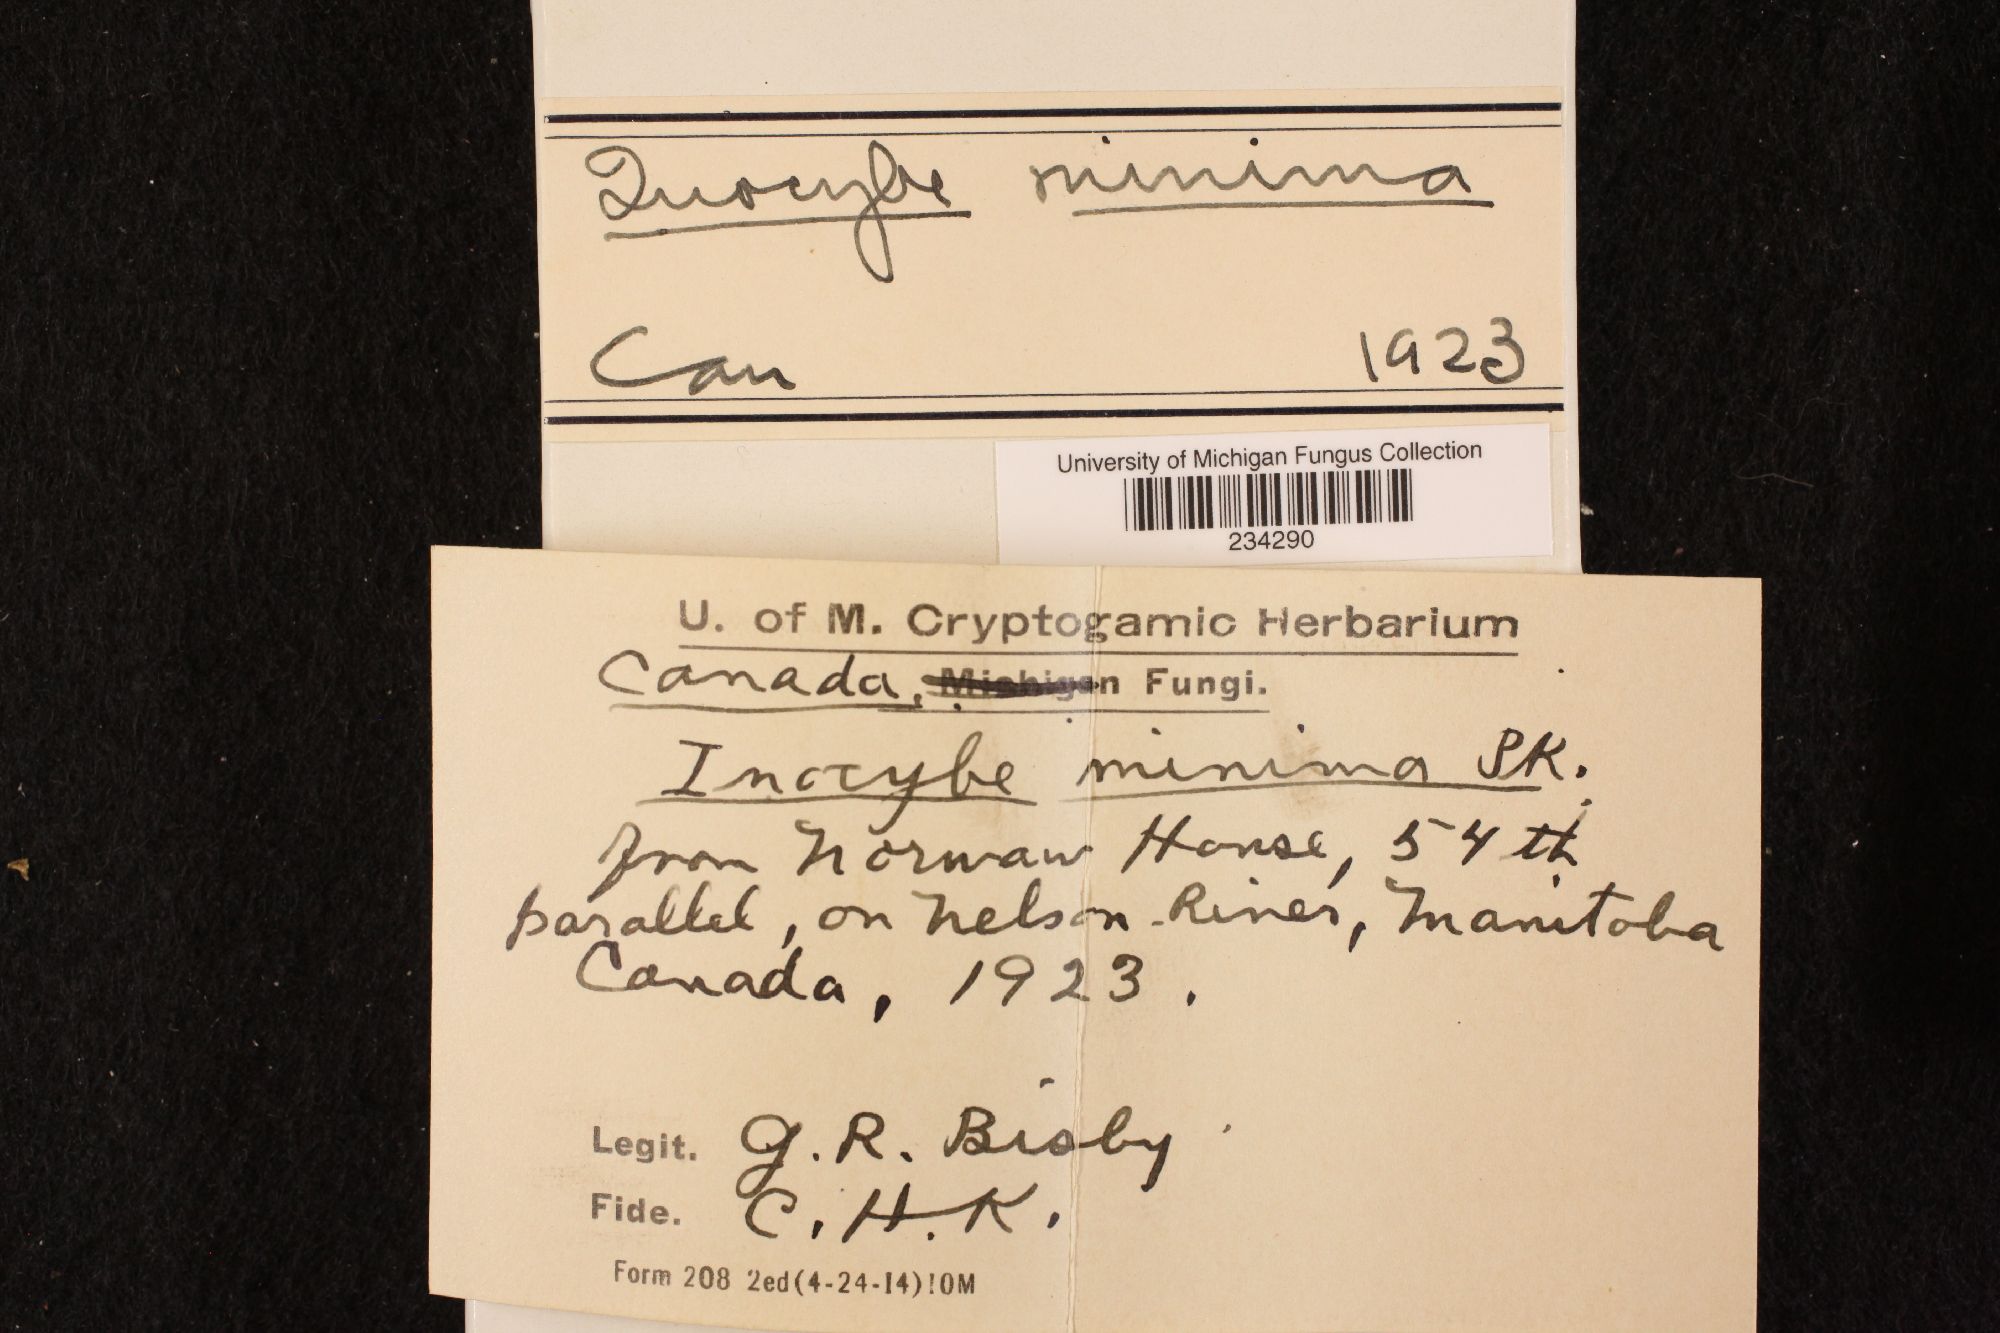 Inocybe minima
Can 1923
University of Michigan Fungus Collection
234290
U. of M. Cryptogamic Herbarium
Canada, Michigan Fungi.
Inocybe minima Pk.
from Norway House, 54th
parallel, on Nelson River, Manitoba
Canada, 1923.
Legit. G. R. Bisby
Fide. C. H. K.
Form 208 2ed(4-24-14)10M